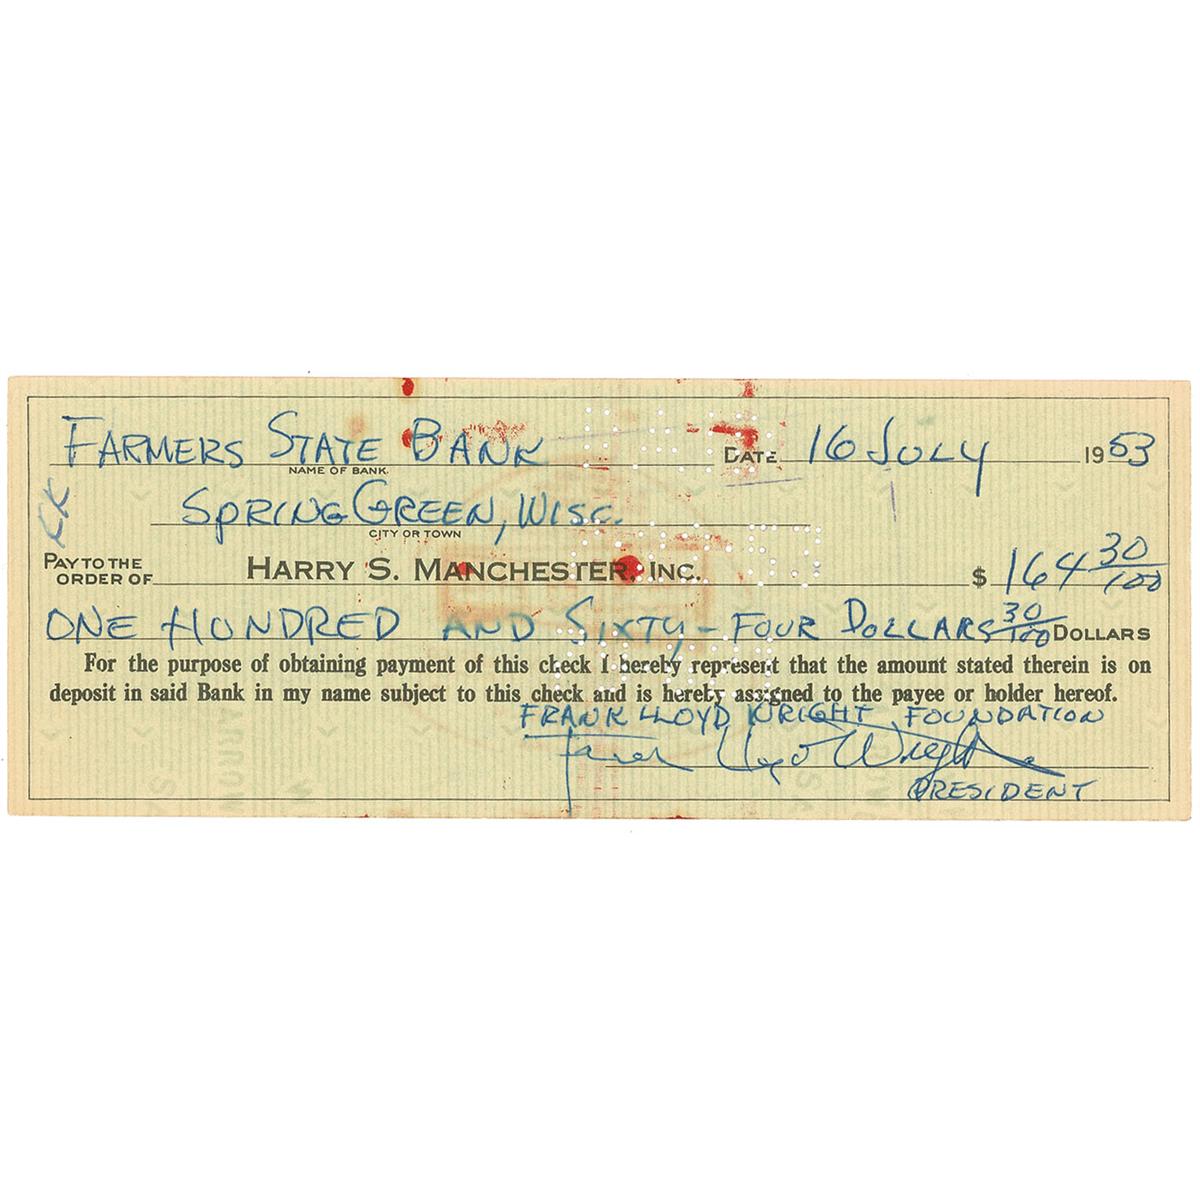 FARMERS STATE BANK DATE 16 JULY 1953
NAME OF BANK
SPRING GREEN, WISC.
CITY OR TOWN
PAY TO THE ORDER OF HARRY S. MANCHESTER, INC. $ 164 30/100
ONE HUNDRED AND SIXTY-FOUR DOLLARS 30/100 DOLLARS
For the purpose of obtaining payment of this check I hereby represent that the amount stated therein is on
deposit in said Bank in my name subject to this check and is hereby assigned to the payee or holder hereof.
FRANK LLOYD WRIGHT FOUNDATION
Frank Lloyd Wright
PRESIDENT